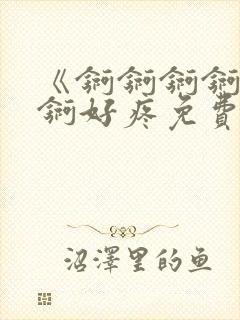 《锕锕锕锕
锕好疼免費
沼澤里的鱼